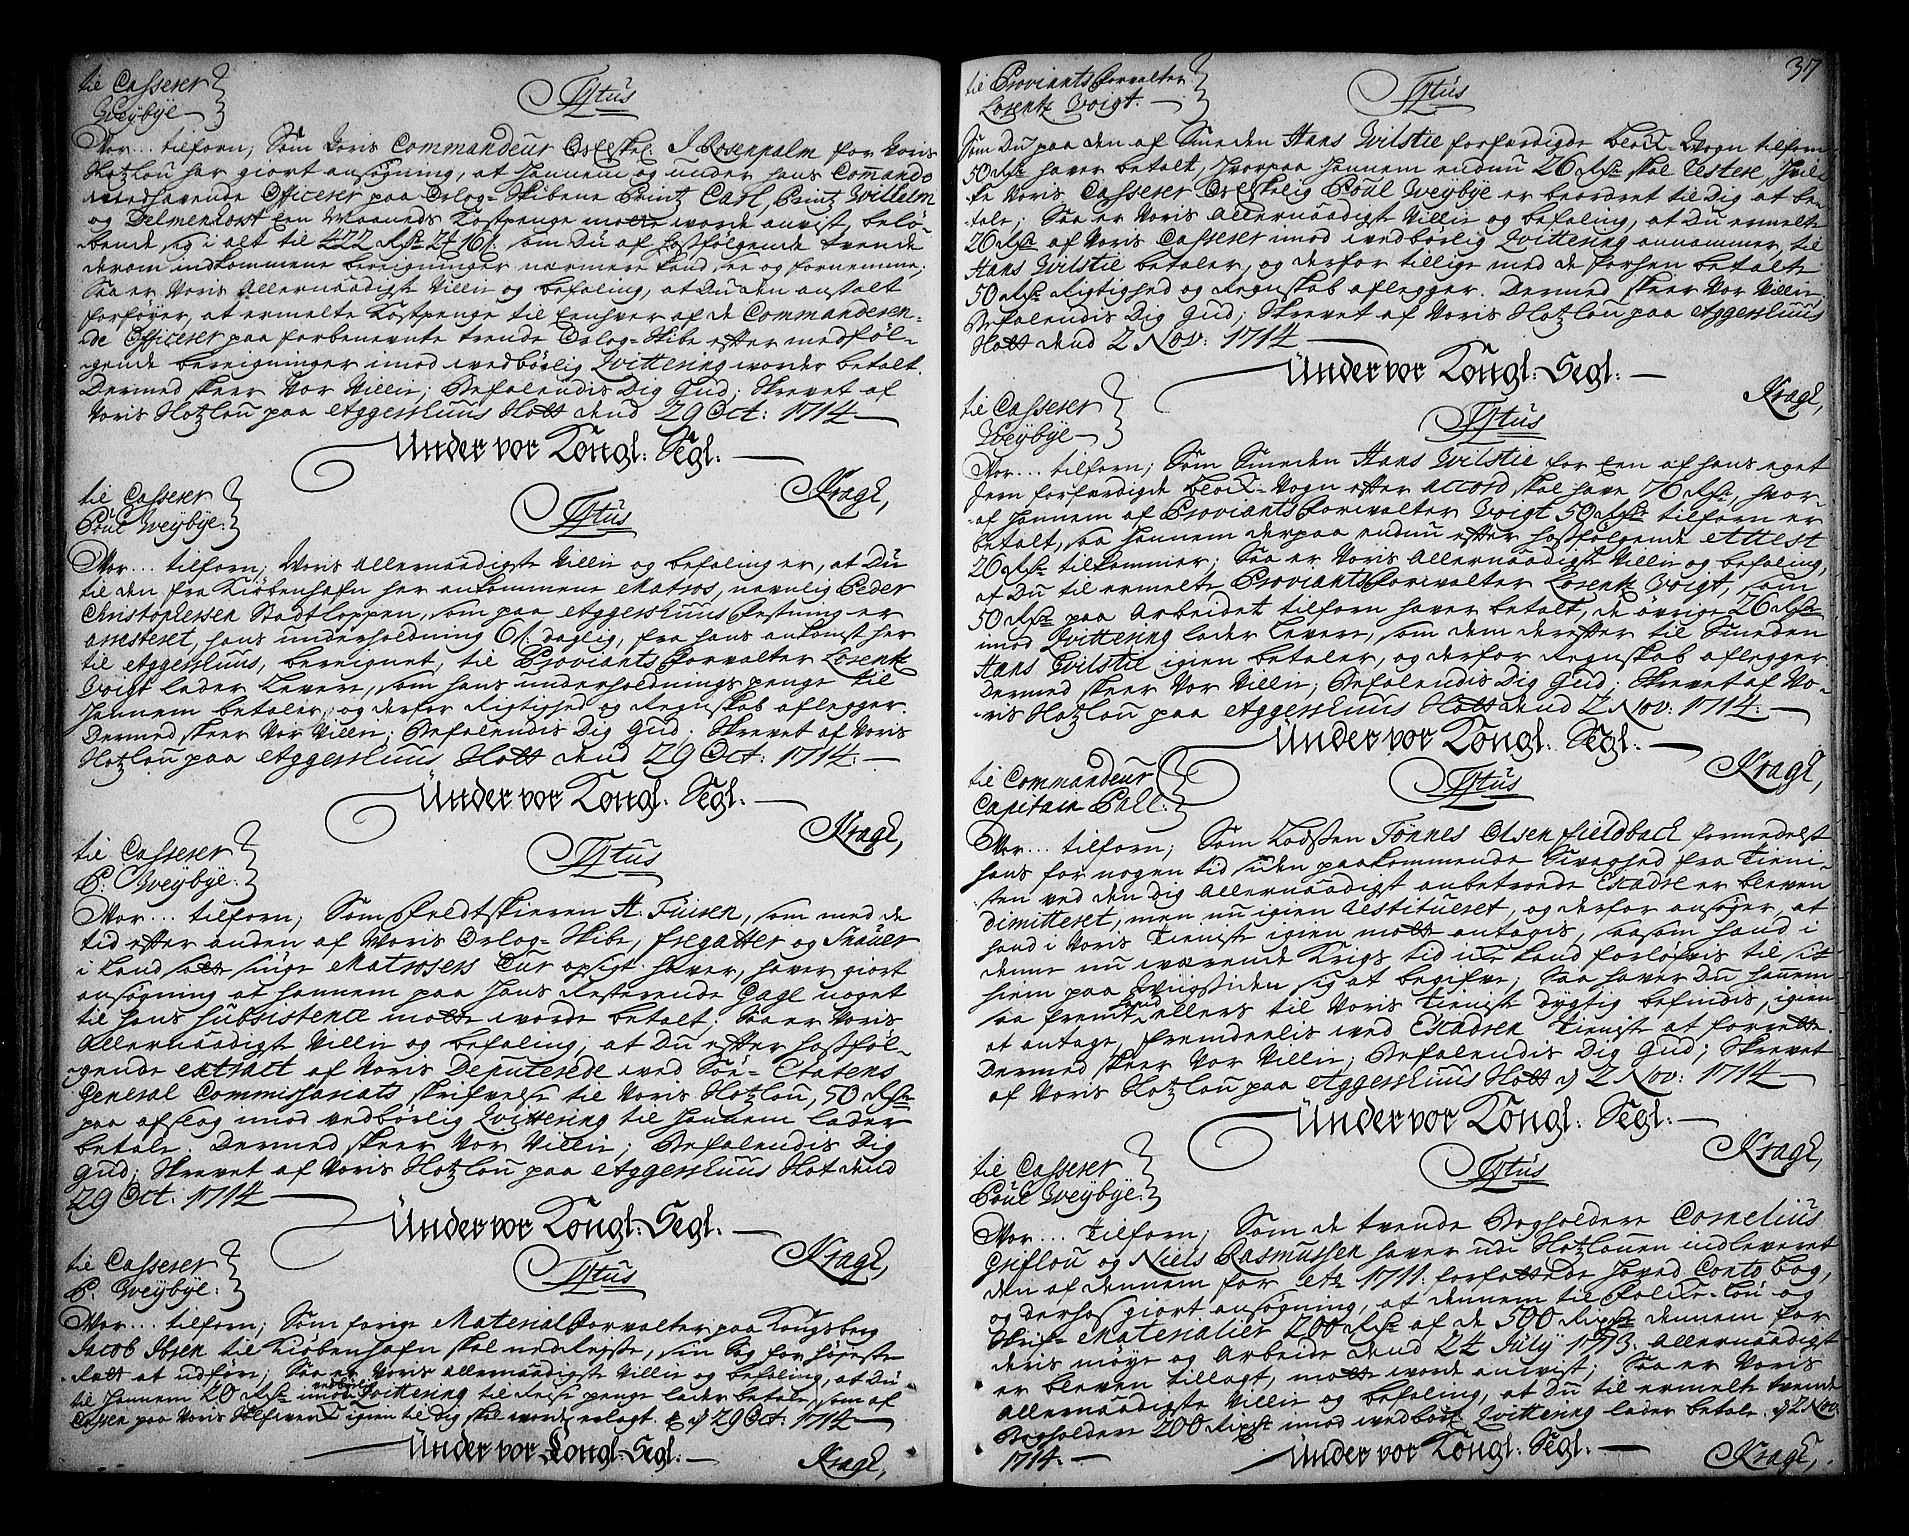 til Casserer
Weÿbÿe
Tÿtus
Vor... tilforn; Som Voris Commandeur Osl. Eskel. I Rosenpalm for Voris
Slotzlou har giort ansøgning, at hannem og under hans Commando
medhavende Officerer paa Orlog-Skibene Printz Carl, Printz Wilhelm
og Delmenhorst Een Maaneds Kostpenge motte worde anvist, belø-
bende sig i alt til 422 Rdr 2 16 s. som Du af hosfølgende tvende
derom indkommene bereigninger nærmere kand see og fornemme;
Saa er Voris Allernaadigste Villie og befaling, at Du den anstalt
forføier, at ermelte Kostpenge til Eenhver af de Commanderen-
de Officerer paa forbenevnte trende Orlog-Skibe efter medføl-
gende bereigninger imod wedbørlig Qvittering worder betalt.
Dermed skeer Vor Villie; Befalendis Dig Gud; Skrevet af
Voris Slotzlou paa Aggershuus Slott dend 29 Oct: 1714
Under vor Kongl: Segl.
Kragh,
til Casserer
Poul Weÿbÿe.
Tÿtus
Vor... tilforn; Woris Allernaadigste Villie og befaling er, at Du
til den fra Kiøbenhafn her ankommene Matros, navnlig Peder
Christophersen Stadtloppen, som paa Aggershuus Festning er
arresteret, hans underholdning 6 s. daglig, fra hans ankomst her
til Aggershuus, bereignet, til Proviants Forvalter Lorentz
Voigt lader Levere, som hans underholdnings penge til
hannem betaler, og derfor Rigtighed og Regnskab aflegger.
Dermed skeer Vor Villie; Befalendis Dig Gud; Skrevet af Voris
Slotzlou paa Aggershuus Slott dend 29 Oct: 1714.
Under vor Kongl: Segl.
Kragh,
til Casserer
P: Weÿbÿe.
Tÿtus
Vor... tilforn; Som Feldtskieren H. Fuisen, som med de
tid efter anden af Woris Orlog-Skibe, fregatter og Snauer
i Land satte siuge Matrosers Cur opsigt haver, haver giort
ansøgning at hannem paa hans Resterende Gage noget
til hans Subsistence motte worde betalt; Saa er Voris
Allernaadigste Villie og befaling, at Du efter hosføl-
gende extract af Voris Deputerede wed Søe-Etatens
General Commissariats skrifvelse til Voris Slotzlou, 50 Rdr
paa afslag imod vedbørlig Qvittering til hannem lader
betale. Dermed skeer Vor Villie; Befalendis Dig
Gud; Skrevet af Voris Slotzlou paa Aggershuus Slot dend
29 Oct: 1714
Under vor Kongl: Segl.
Kragh,
til Casserer
P: Weÿbÿe.
Tÿtus
Vor... tilforn; Som forige Material Forvalter paa Kongsberg
Jacob Ibsen til Kiøbenhafn skal nedreiste, sin Sag for høyeste
Rett at udføre; Saa er Voris Allernaadigste Villie og befaling, at Du
til hannem 20 Rdr imod vedbørlig Qvittering til Reise penge lader betale, som af
Cassen paa Voris igien til Dig skal worde erlagt. d 29 Oct: 1714
Under vor Kongl: Segl.
Kragh,
37
til Proviants Forvalter
Lorentz Voigt.
Tÿtus
Som Du paa den af Smeden Hans Qvilstie forferdigde Block-Vogn tilforn
50 Rdr haver betalt, hvorpaa hannem endnu 26 Rdr skal Restere, hvil-
ke Voris Casserer Poul Weÿbÿe er beordret til Dig at be-
tale; Saa er Voris Allernaadigst Villie og befaling, at Du ermelte
26 Rdr af Voris Casserer imod wedbørlig Qvittering annammer, til
Hans Qvilstie betaler, og derfor tillige med de forhen betalte
50 Rdr Rigtighed og Regnskab aflegger. Dermed skeer Vor Villie;
Befalendis Dig Gud; Skrevet af Voris Slotzlou paa Aggershuus
Slott dend 2 Nov: 1714
Under vor Kongl: Segl.
Kragh,
til Casserer
Weÿbÿe
Tÿtus
Vor... tilforn; Som Smeden Hans Qvilstie for Een af hans eget
Jern forferdigde Block-Vogn efter Accord skal have 76 Rdr, hvor-
af hannem af Proviants Forvalter Voigt 50 Rdr tilforn er
betalt, saa hannem derpaa endnu efter hosfølgende Attest
26 Rdr tilkommer; Saa er Voris Allernaadigste Villie og befaling,
at Du til ermelte Proviants Forvalter Lorentz Voigt, som
50 Rdr paa Arbeidet tilforn haver betalt, de øvrige 26 Rdr
imod Qvittering lader Levere, som dem derefter til Smeden
Hans Qvilstie igien betaler, og derfor Regnskab aflegger.
Dermed skeer Vor Villie; Befalendis Dig Gud; Skrevet af Vo-
ris Slotzlou paa Aggershuus Slott dend 2 Nov: 1714.
Under vor Kongl: Segl.
Kragh,
til Commandeur
Capitain Pall.
Tÿtus
Vor... tilforn; Som Lodsen Tönnes Olsen Fieldback formedelst
hans for nogen tid siden paakommende Svaghed fra Tieni-
sten ved den Dig Allernaadigst anbetroede Escadre er bleven
dimitteret, men nu igien restitueret, og derfor ansøger, at
hand i Voris Tieniste igien motte antagis, saasom hand i
denne nu wærende Krigs tid icke kand forløfvis til sit
hiem paa Svugsiden sig at begifve; Saa haver Du hannem
saa fremt hand ellers til Voris Tieniste dygtig befindis, igien
at antage, fremdeelis wed Escadren Tieniste at forrette.
Dermed skeer Vor Villie; Befalendis Dig Gud; Skrevet
af Voris Slotzlou paa Aggershuus Slott d 2 Nov: 1714
Under vor Kongl: Segl.
Kragh,
til Casserer
Poul Weÿbÿe.
Tÿtus
Vor... Tilforn; Som de tvende Bogholdere Cornelius
Griflou og Niels Rasmussen haver udi Slotzlouen indleveret
den af dennem for Ao 1711. forfattede Hoved Conto Bog,
og derhos giort ansøgning, at dennem til Folke-løn og
Skrifve Materialier 200 Rdr af de 500 Rixdr dennem for
deris møye og Arbeide dend 24 July 1713. Allernaadigst
er bleven tillagt, motte worde anvist; Saa er Voris
Allernaadigste Villie og befaling, at Du til ermelte tvende
Bogholdere 200 Rixdr imod wedbørl: Qvittering lader betale. d 2 Nov:
1714.
Under vor Kongl: Segl.
Kragh,